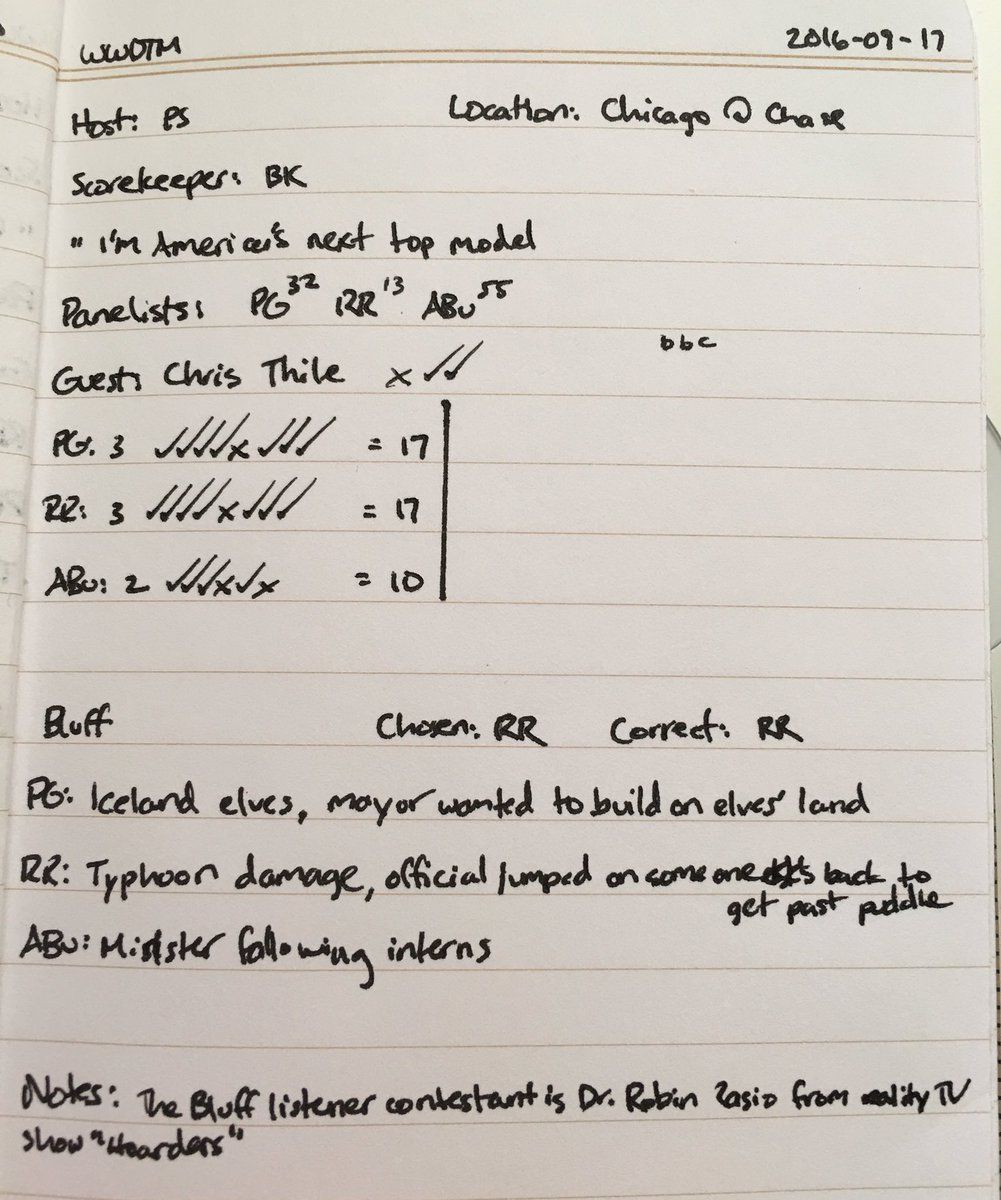 WWDTM 2016-09-17
Host: PS Location: Chicago @ Chase
Scorekeeper: BK
" I'm America's next top model
Panelists: PG 32 RR 13 ABu 55
bbc
Guest: Chris Thile x ✓✓
PG: 3 ✓✓✓✓x✓✓✓ = 17
RR: 3 ✓✓✓✓x✓✓✓ = 17
ABu: 2 ✓✓✓x✓x = 10
Bluff Chosen: RR Correct: RR
PG: Iceland elves, mayor wanted to build on elves' land
RR: Typhoon damage, official jumped on someone's back to
get past puddle
ABu: Minister following interns
Notes: The Bluff listener contestant is Dr. Robin Zasio from reality TV
show "Hoarders"